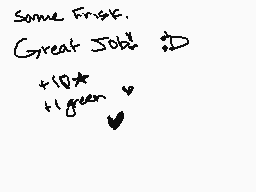 some Frisk.
Great Job!! :D
+10★
+1 green ♥
♥